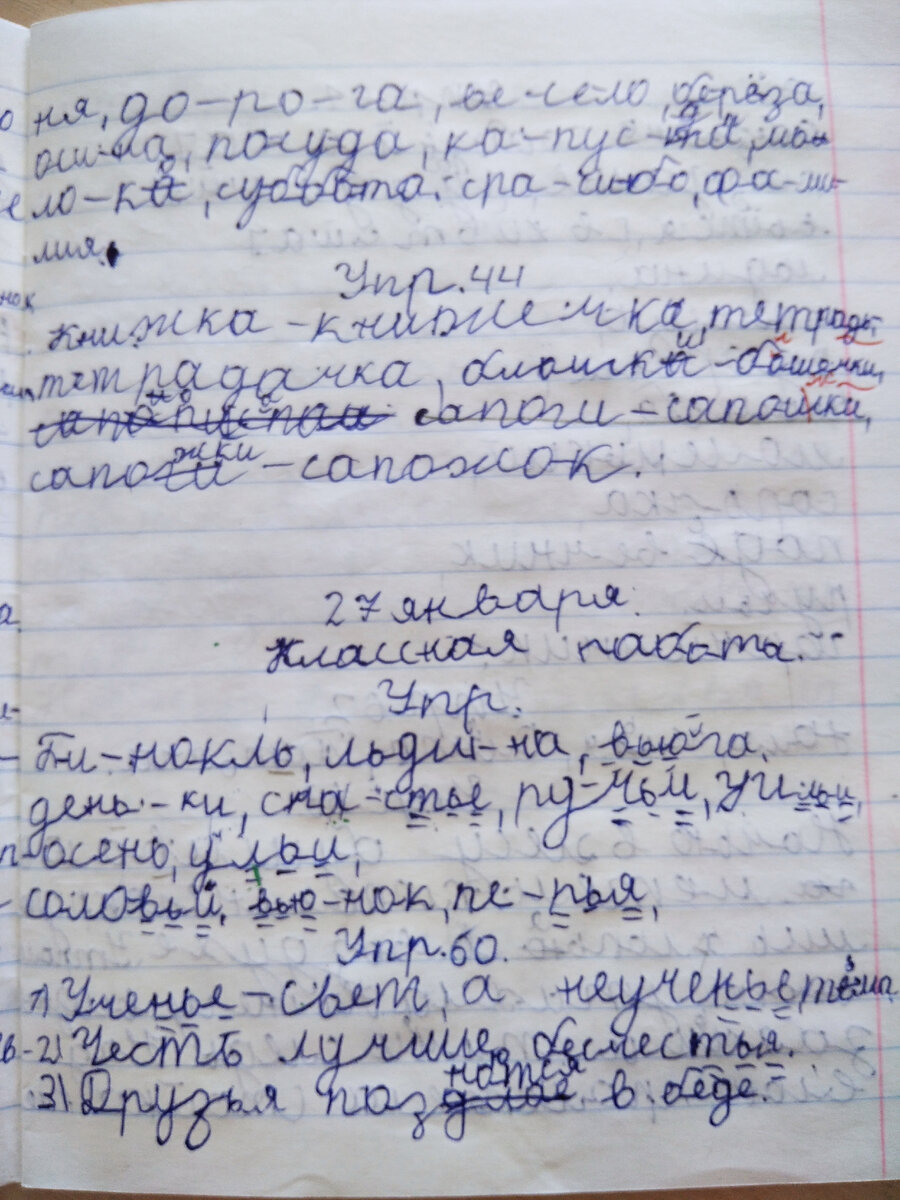 ня, до-ро-га, весело, берёза,
осина, посуда, ка-пус-та,
ло-ко, суббота, спа-сибо, фа-ми-
лия.
Упр. 44
книжка - книжечка, тетрадь
тетрадачка, - башенки,
сапоги - сапожки,
сапожки - сапожок.
27 января.
Классная работа.
Упр.
Би-нокль, льдин-на, вьюга,
день-ки, сча-стье, ру-чьи,
осень, ульи,
соловьи, вью-нок, пе-рья,
Упр. 60.
1) Ученье - свет, а неученье тьма
2) Честь лучше бесчестья.
3) Друзья познаются в беде.